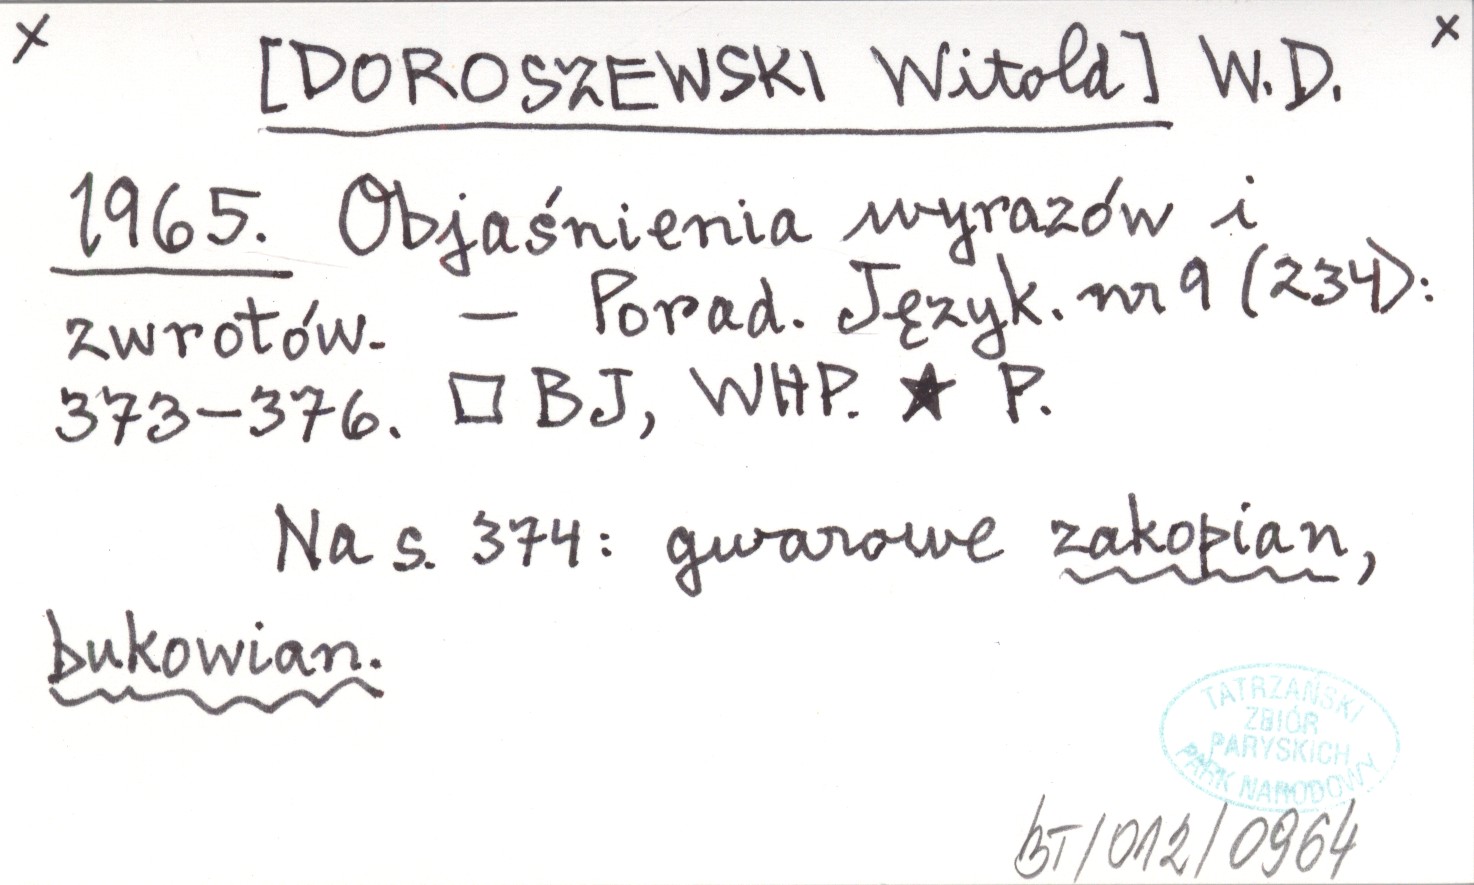 x x
[DOROSZEWSKI Witold] W.D.
1965. Objaśnienia wyrazów i
zwrotów. — Porad. Język. nr 9 (234):
373-376. □ BJ, WHP. ★ P.
Na s. 374: gwarowe zakopian,
bukowian.
TATRZAŃSKI
ZBIÓR
PARYSKICH
PARK NARODOWY
BT/012/0964